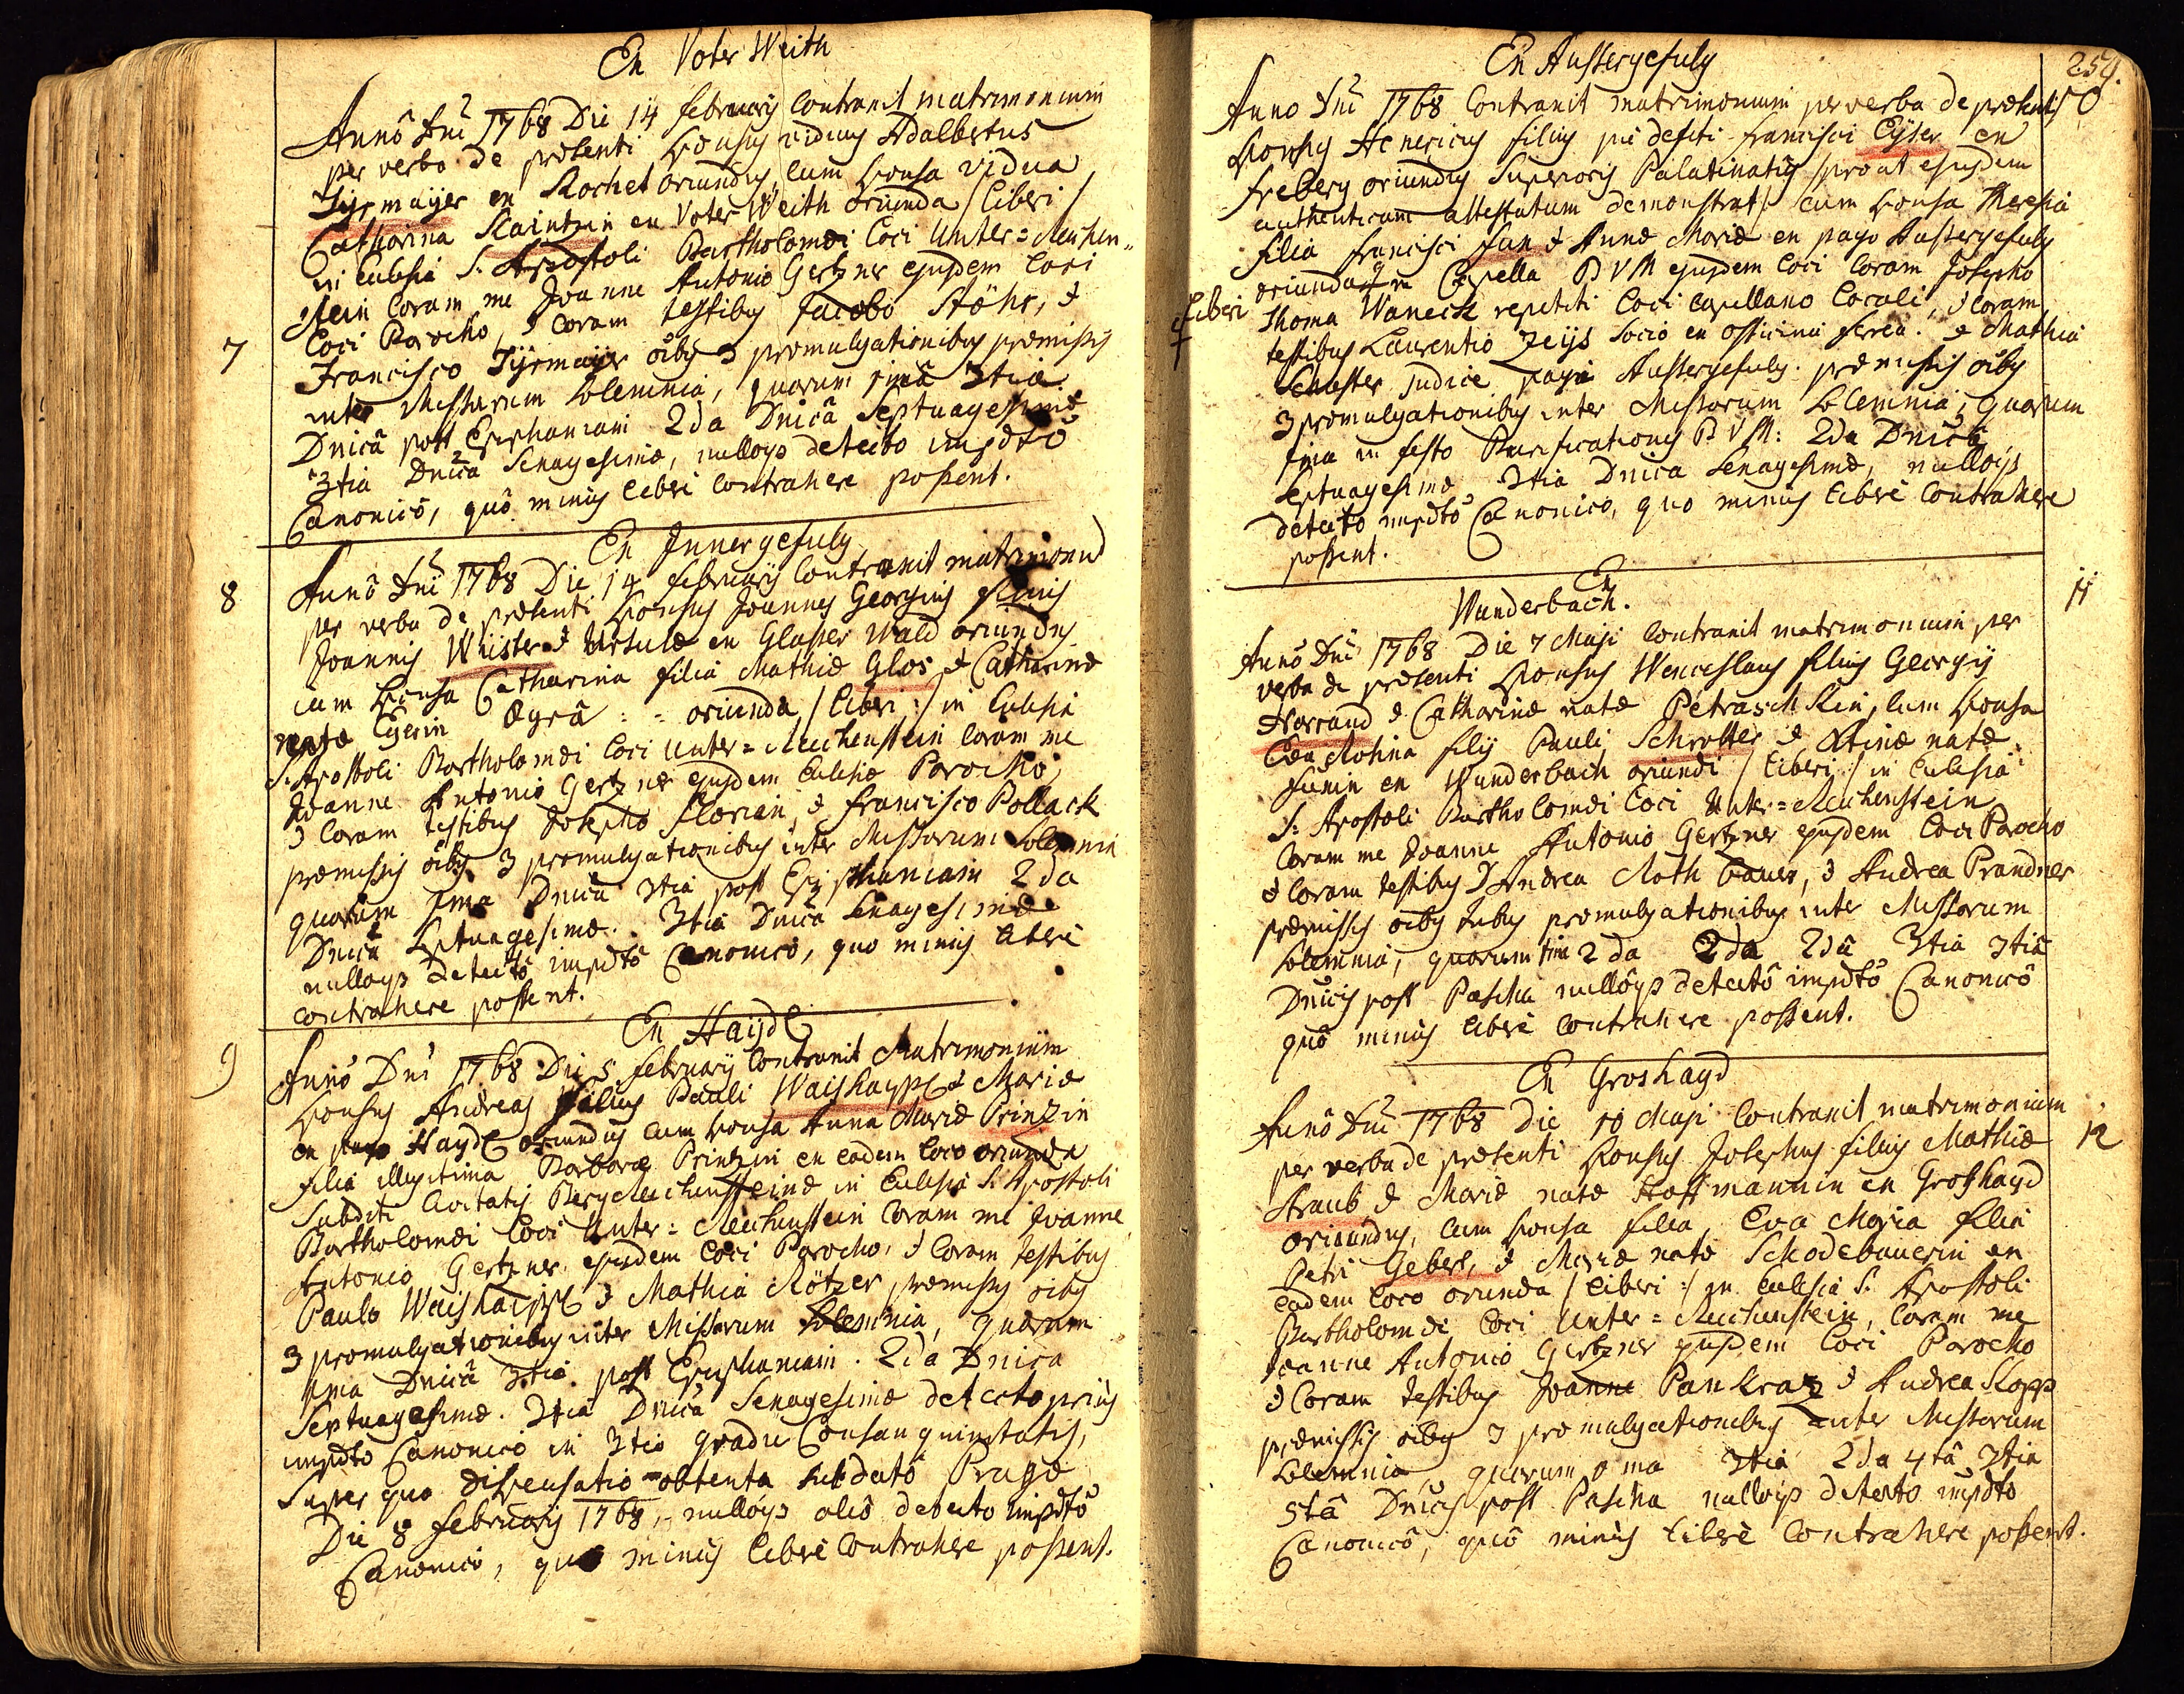 Ex Voter Weith
Anno Dni 1768 Die 14 february Contraxit matrimonium
per verba de præsenti sponsus viduus Adalbertus
Tyrmaÿer ex Rochet oriundus, cum sponsa vidua
Catharina Kaintzin ex Voter Weith oriunda /liberi/
in Ecclesia S. Apostoli Bartholomæi loci Unter=Reichen-
stein Coram me Joanne Antonio Gertzner ejusdem loci
Loci Parocho, & Coram testibus Jacobo Stöhr, &
7
Francisco Tyrmaÿer oibus 3 promulgationibus præmissis
inter Missarum Solemnia, quarum 1ma 3tia
Dnica post Epiphaniam 2da Dnica Septuagesimæ
3tia Dnica Sexagesimæ, nulloqs detecto impdto
Canonico, quo minus liberi Contrahere possent.
Ex Innergefuly
8
Anno Dni 1768 Die 14 february Contraxit matrimoniu
per verba de præsenti sponsus Joannes Georgius filius
Joannis Wister & Ursulæ ex Glasser Wald oriundus
cum sponsa Catharina filia Mathiæ Glos & Catharinæ
natæ Egerin Ægra = oriunda /liberi:/ in Ecclesia
S. Apostoli Bartholomæi loci Unter=Reichenstein Coram me
Joanne Antonio Gertzner ejusdem Ecclesiæ Parocho
& Coram testibus Josepho Florian, & Francisco Pollack
præmissis oibus 3 promulgationibus inter Missarum Solemnia
quarum 1ma Dnica 3tia post Epiphaniam 2da
Dnica Septuagesimæ. 3tia Dnica Sexagesimæ
nulloqs detecto impdto Canonico, quo minus liberè
contrahere possent.
Ex Haÿdl
9
Anno Dni 1768 Die 5 february Contraxit Matrimonium
sponsus Andreas filius Pauli Waishaÿpl & Mariæ
ex pago Haydl oriundus cum sponsa Anna Maria Prinzin
filia illegitima Barbaræ Printzin ex eadem loco oriunda
Subditi Civitatis BergReichensteinæ in Ecclesia S. Apostoli
Bartholomæi loci Unter=Reichenstein Coram me Joanne
Antonio Gertzner ejusdem loci Parocho, & Coram testibus
Paulo Waishaÿpl & Mathia Rötzer præmissis oibus
3 promulgationibus inter Missarum Solemnia, quarum
1ma Dnica 3tia post Epiphaniam. 2da Dnica
Septuagesimæ. 3tia Dnica Sexagesimæ detecto prius
impdto Canonico in 3tio gradu Consanguinitatis,
super quo dispensatio obtenta sub dato Pragæ
Die 8 february 1768, nulloqs alio detecto impdto
Canonico, quo minus liberè Contrahere possent.
259.
Ex Aussergefuly
10
Anno Dni 1768 Contraxit matrimonium per verba de præsenti
sponsus Henericus filius piè defcti Francisci Eÿser ex
Freberg oriundus Superioris Palatinatus /prout ejusdem
authenticum attestatum demonstrat/ cum sponsa Theresia
filia Francisci Fux & Annæ Mariæ ex pago Aussergefuly
oriunda in Capella B V M ejusdem loci Coram Josepho
liberi
Thoma Waneck repetiti loci Capellano locali, & Coram
testibus Laurentio Zeijs socio ex officina ferrea. & Mathia
Schuster judice pagi Aussergefuly. præmissis oibus
3 promulgationibus inter Missarum Solemnia, quarum
1ma in festo Purificationis B V M: 2da Dnica
Septuagesimæ 3tia Dnica Sexagesimæ, nulloqs
detecto impdto Canonico, quo minus liberè Contrahere
possent.
Ex
Wunderbach.
11
Anno Dni 1768 Die 7 Maji Contraxit matrimonium per
verba de præsenti sponsus Wenceslaus filius Georgij
Norrand & Catharinæ natæ Petraschkin, cum sponsa
Eva Rosina filij Pauli Schrotter & natæ
Funin ex Wunderbach oriundi /liberi:/ in Ecclesia
S: Apostoli Bartholomæi loci Unter=Reichenstein
Coram me Joanne Antonio Gertzner ejusdem loci Parocho
& Coram testibus Andrea Rothbauer, & Andrea Prandner
præmissis oibus tribus promulgationibus inter Missarum
Solemnia, quarum 1ma 2da 2da 2da 3tia 3tia
Dnicis post Pascha nulloqs detecto impdto Canonico
quo minus liberè Contrahere possent.
Ex Groshayd
12
Anno Dni 1768 Die 10 Maji Contraxit matrimonium
per verba de præsenti sponsus Josephus filius Mathiæ
Straub & Mariæ natæ Hoffmannin ex Groshayd
oriundus, cum sponsa filia, Eva Maria filia
Petri Geberl, & Mariæ natæ Schodebauerin ex
eadem loco oriunda /liberi:/ in Ecclesia S. Apostoli
Bartholomæi loci Unter=Reichenstein, Coram me
Joanne Antonio Gertzner ejusdem loci Parocho
& Coram testibus Joanne Pankraz & Andrea Kopp
præmissis oibus 3 promulgationibus inter Missarum
Solemnia quarum 1ma 3tia 2da 4ta 3tia
5ta Dnicis post Pascha nulloqs detecto impdto
Canonico, quo minus liberè Contrahere possent.